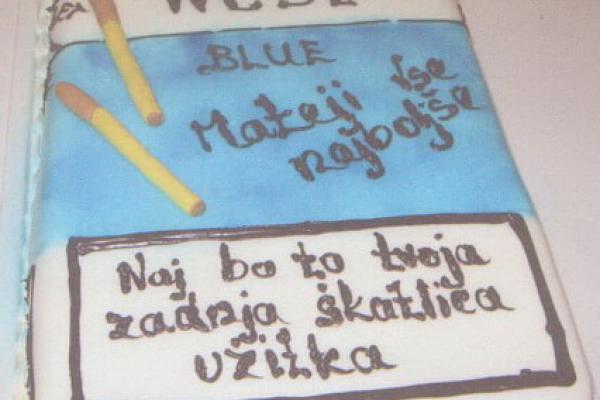 WEST
BLUE
Mateji vse
najboljše
Naj bo to tvoja
zadnja škatlica
užitka